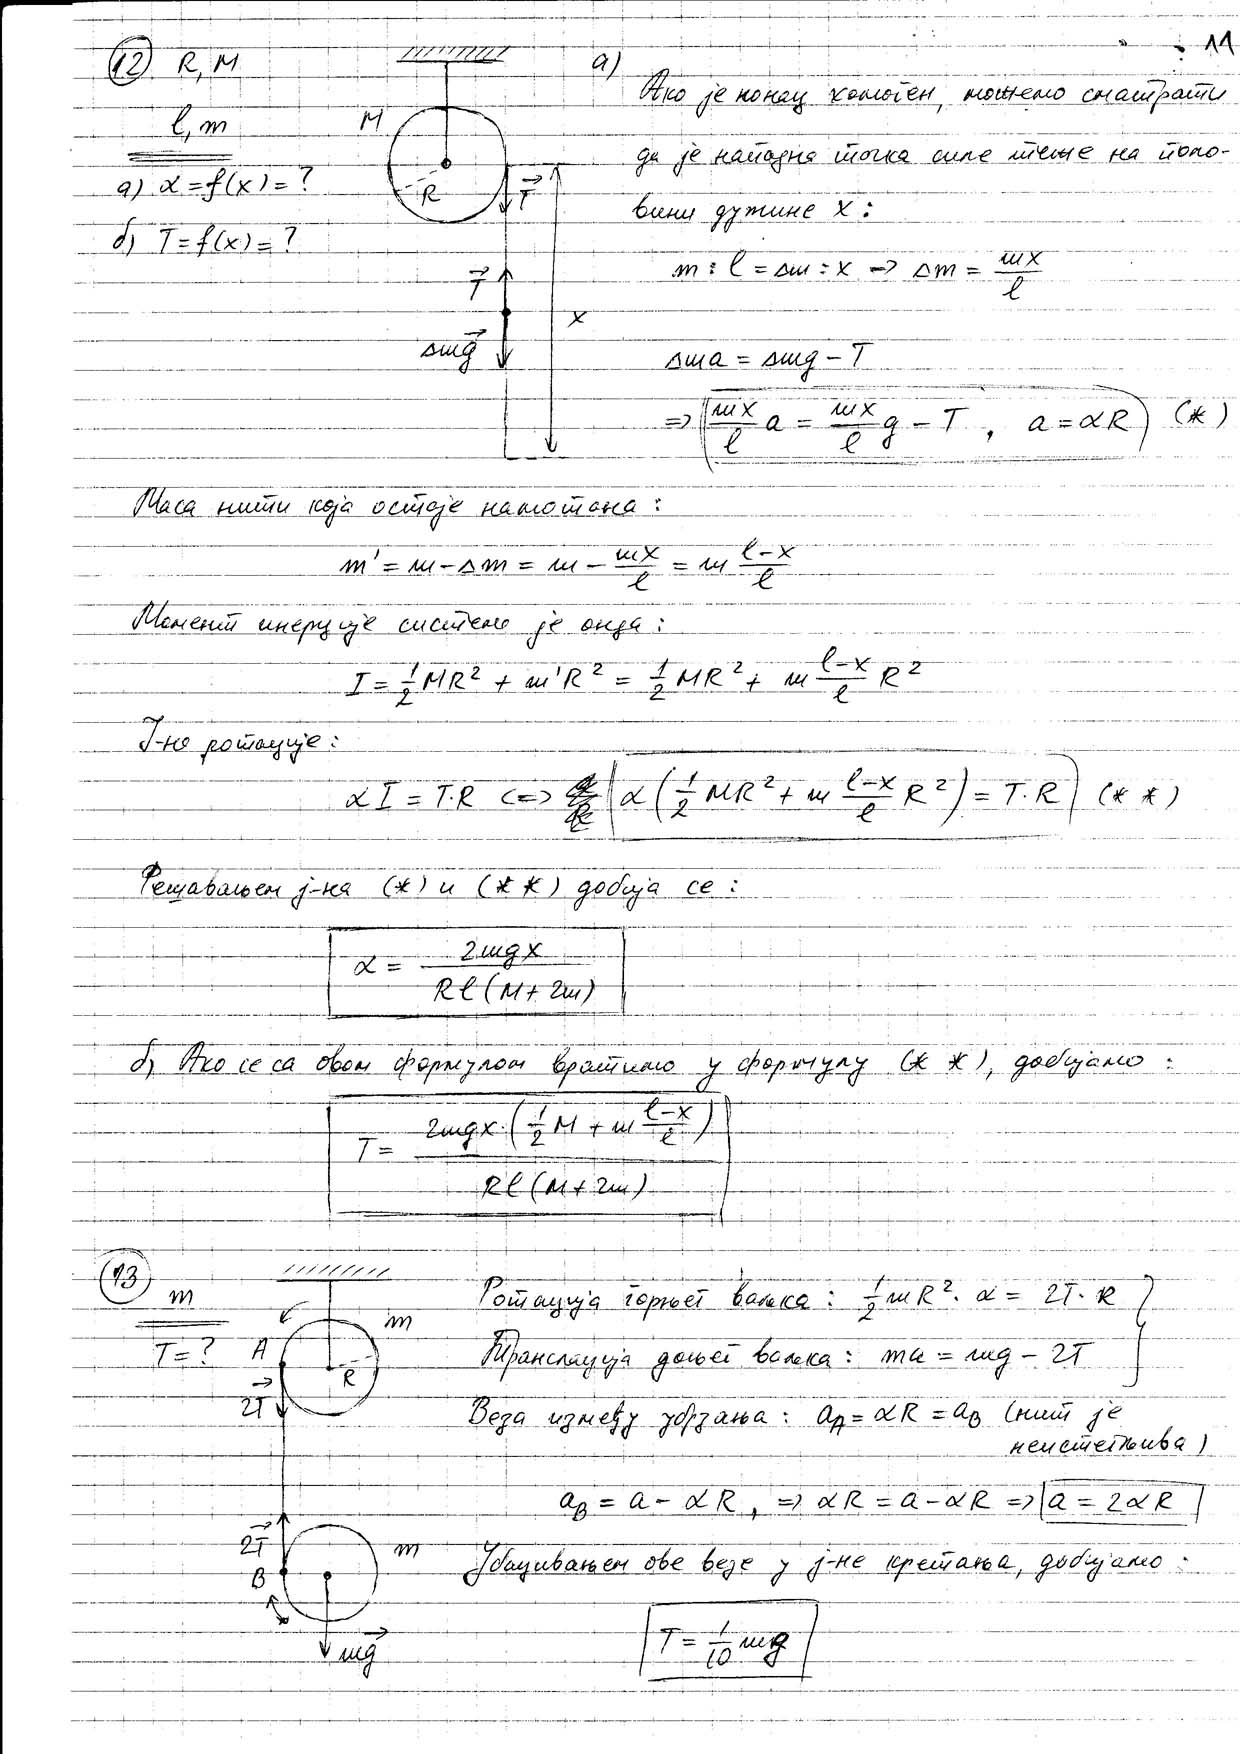 11
12) R, M
l, m
а) α = f(x) = ?
б) T = f(x) = ?
M
R
T
T
Δmg
x
а)
Ако је конац хомоген, можемо сматрати
да је нападна тачка силе теже на поло-
вини дужине x:
m : l = Δm : x → Δm = mx/l
Δma = Δmg - T
⇒ mx/l a = mx/l g - T, a = αR (*)
Маса нити која остаје намотана:
m' = m - Δm = m - mx/l = m (l-x)/l
Момент инерције система је онда:
I = 1/2 MR² + m'R² = 1/2 MR² + m (l-x)/l R²
Ј-на ротације:
αI = T·R <=> α(1/2 MR² + m (l-x)/l R²) = T·R (**)
Решавањем ј-на (*) и (**) добија се:
α = 2mgx / Rl(M+2m)
б) Ако се са овом формулом вратимо у формулу (**), добијамо:
T = 2mgx·(1/2 M + m (l-x)/l) / Rl(M+2m)
13) m
T = ?
A
m
R
2T
2T
B
m
mg
Ротација горњег ваљка: 1/2 mR²·α = 2T·R
Транслација доњег ваљка: ma = mg - 2T
Веза између убрзања: a_A = αR = a_B (нит је
неистегљива)
a_B = a - αR, ⇒ αR = a - αR ⇒ a = 2αR
Убацивањем ове везе у ј-не кретања, добијамо:
T = 1/10 mg